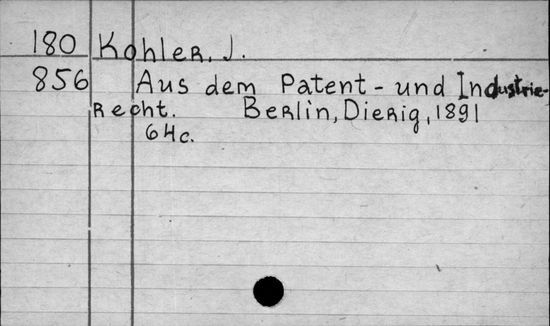 180 Kohler, J.
856 Aus dem Patent- und Industrie-
Recht. Berlin, Dierig, 1891
64c.